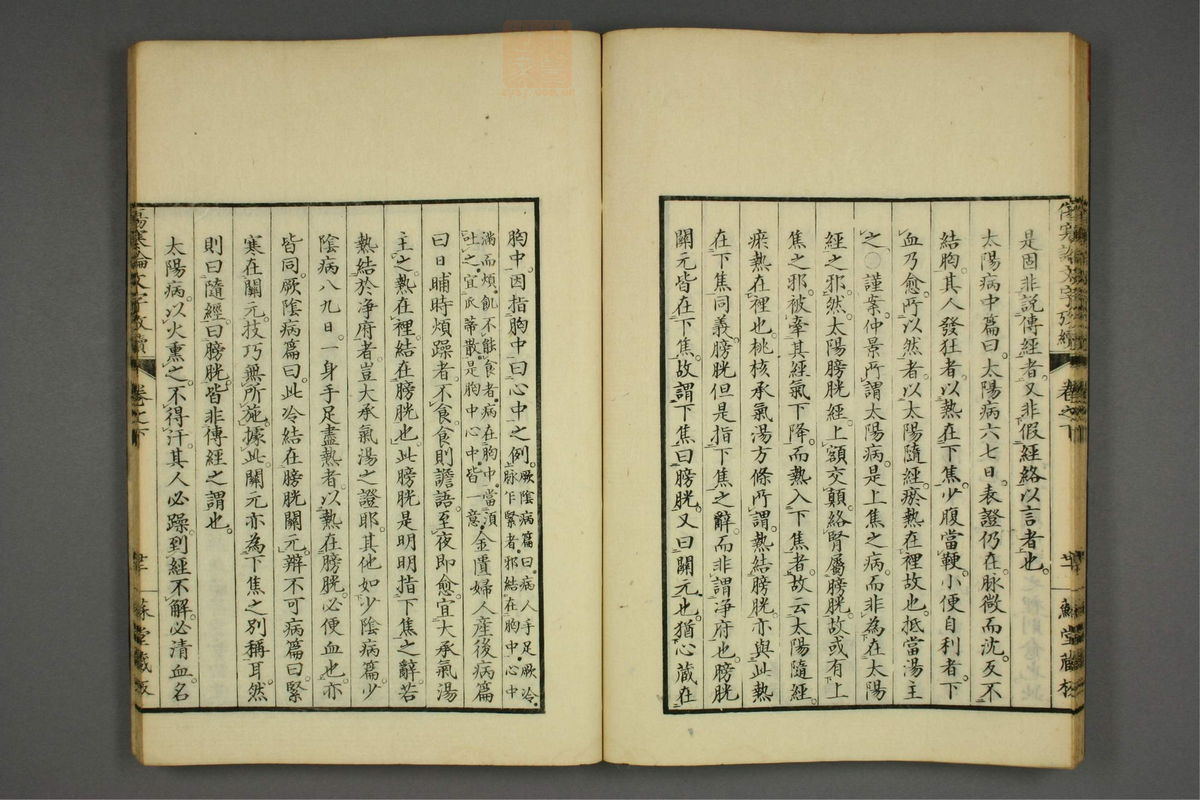 是固非說傳經者又非假經絡以言者也
太陽病中篇曰太陽病六七日表證仍在脉微而沈反不
結胸其人發狂者以熱在下焦少腹當鞕小便自利者下
血乃愈所以然者以太陽隨經瘀熱在裡故也抵當湯主
之○謹案仲景所謂太陽病是上焦之病而非為在太陽
經之邪然太陽膀胱經上額交顛絡腎屬膀胱故或有上
焦之邪被牽其經氣下降而熱入下焦者故云太陽隨經
瘀熱在裡也桃核承氣湯方條所謂熱結膀胱亦與此熱
在下焦同義膀胱但是指下焦之辭而非謂凈府也膀胱
關元皆在下焦故謂下焦曰膀胱又曰關元也猶心藏在
傷寒論文字攷續 卷之下
蘇堂藏板
胸中因指胸中曰心中之例厥陰病篇曰病人手足厥冷
脉乍緊者邪結在胸中心中
滿而煩飢不能食者病在胸中當須
吐之宜瓜蒂散是胸中心中皆一意金匱婦人産後病篇
曰日晡時煩躁者不食食則譫語至夜即愈宜大承氣湯
主之熱在裡結在膀胱也此膀胱是明明指下焦之辭若
熱結於凈府者豈大承氣湯之證耶其他如少陰病篇少
陰病八九日一身手足盡熱者以熱在膀胱必便血也亦
皆同厥陰病篇曰此冷結在膀胱關元辨不可病篇曰緊
寒在關元技巧無所施據此關元亦為下焦之別稱耳然
則曰隨經曰膀胱皆非傳經之謂也
太陽病以火熏之不得汗其人必躁到經不解必清血名
傷寒論文字攷續 卷之下
蘇堂藏板